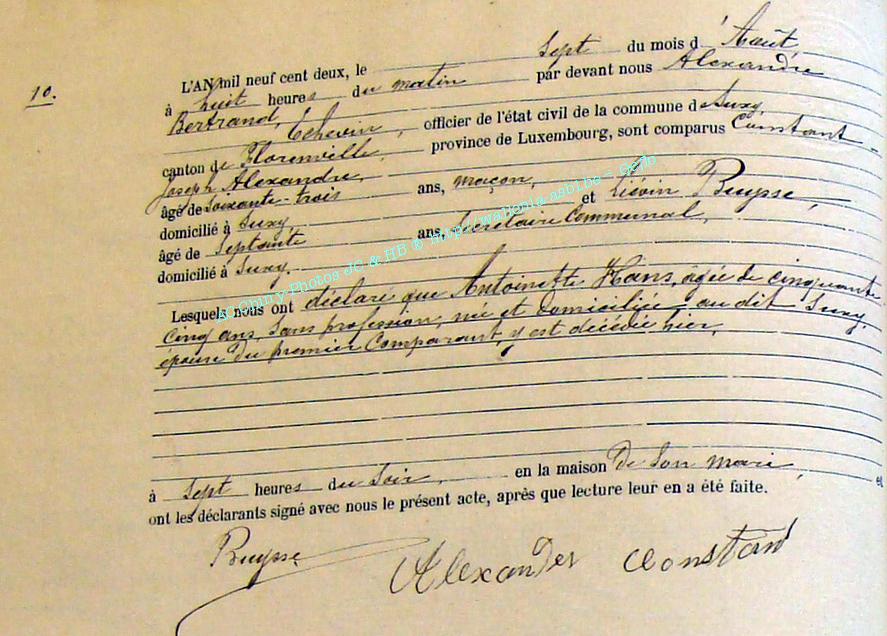 10.
L'AN mil neuf cent deux, le sept du mois d' Août,
à huit heures du matin par devant nous Alexandre
Bertrand, Echevin, officier de l'état civil de la commune de Suxy,
canton de Florenville, province de Luxembourg, sont comparus Constant
Joseph Alexandre,
âgé de soixante-trois ans, maçon,
domicilié à Suxy, et Liévin Buysse,
âgé de septante ans, Secrétaire Communal,
domicilié à Suxy.
Lesquels nous ont déclaré que Antoinette Hans, âgée de cinquante
cinq ans, sans profession, née et domiciliée au dit Suxy,
épouse du premier Comparant, y est décédée hier,
à sept heures du soir, en la maison de son mari et
ont les déclarants signé avec nous le présent acte, après que lecture leur en a été faite.
Buysse
Alexander Constand
AC Chiny Photos JC & HB © http://wallonia.asbl.be - Genib